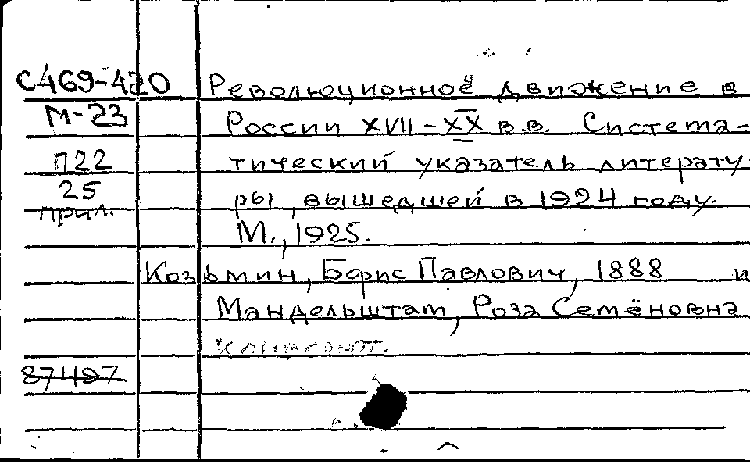 С469-420 Революционное движение в
М-23 России XVII-XX в.в. Система-
П22 тический указатель литерату-
25 ры, вышедшей в 1924 году.
прил. М., 1925.
Козьмин, Борис Павлович, 1888 и
Мандельштам, Роза Семёновна
конволют.
87497